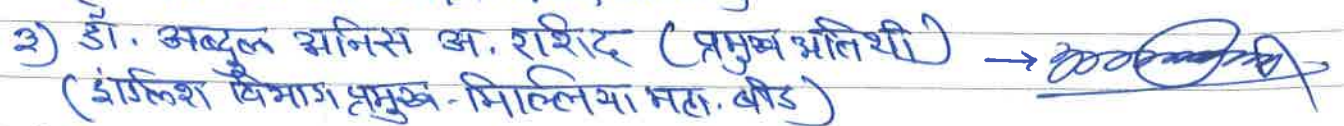 ३) डॉ. अब्दुल अनिस अ. राशिद (प्रमुख अतिथी) →
(इंग्लिश विभाग प्रमुख - मिल्लिया महा. बीड)